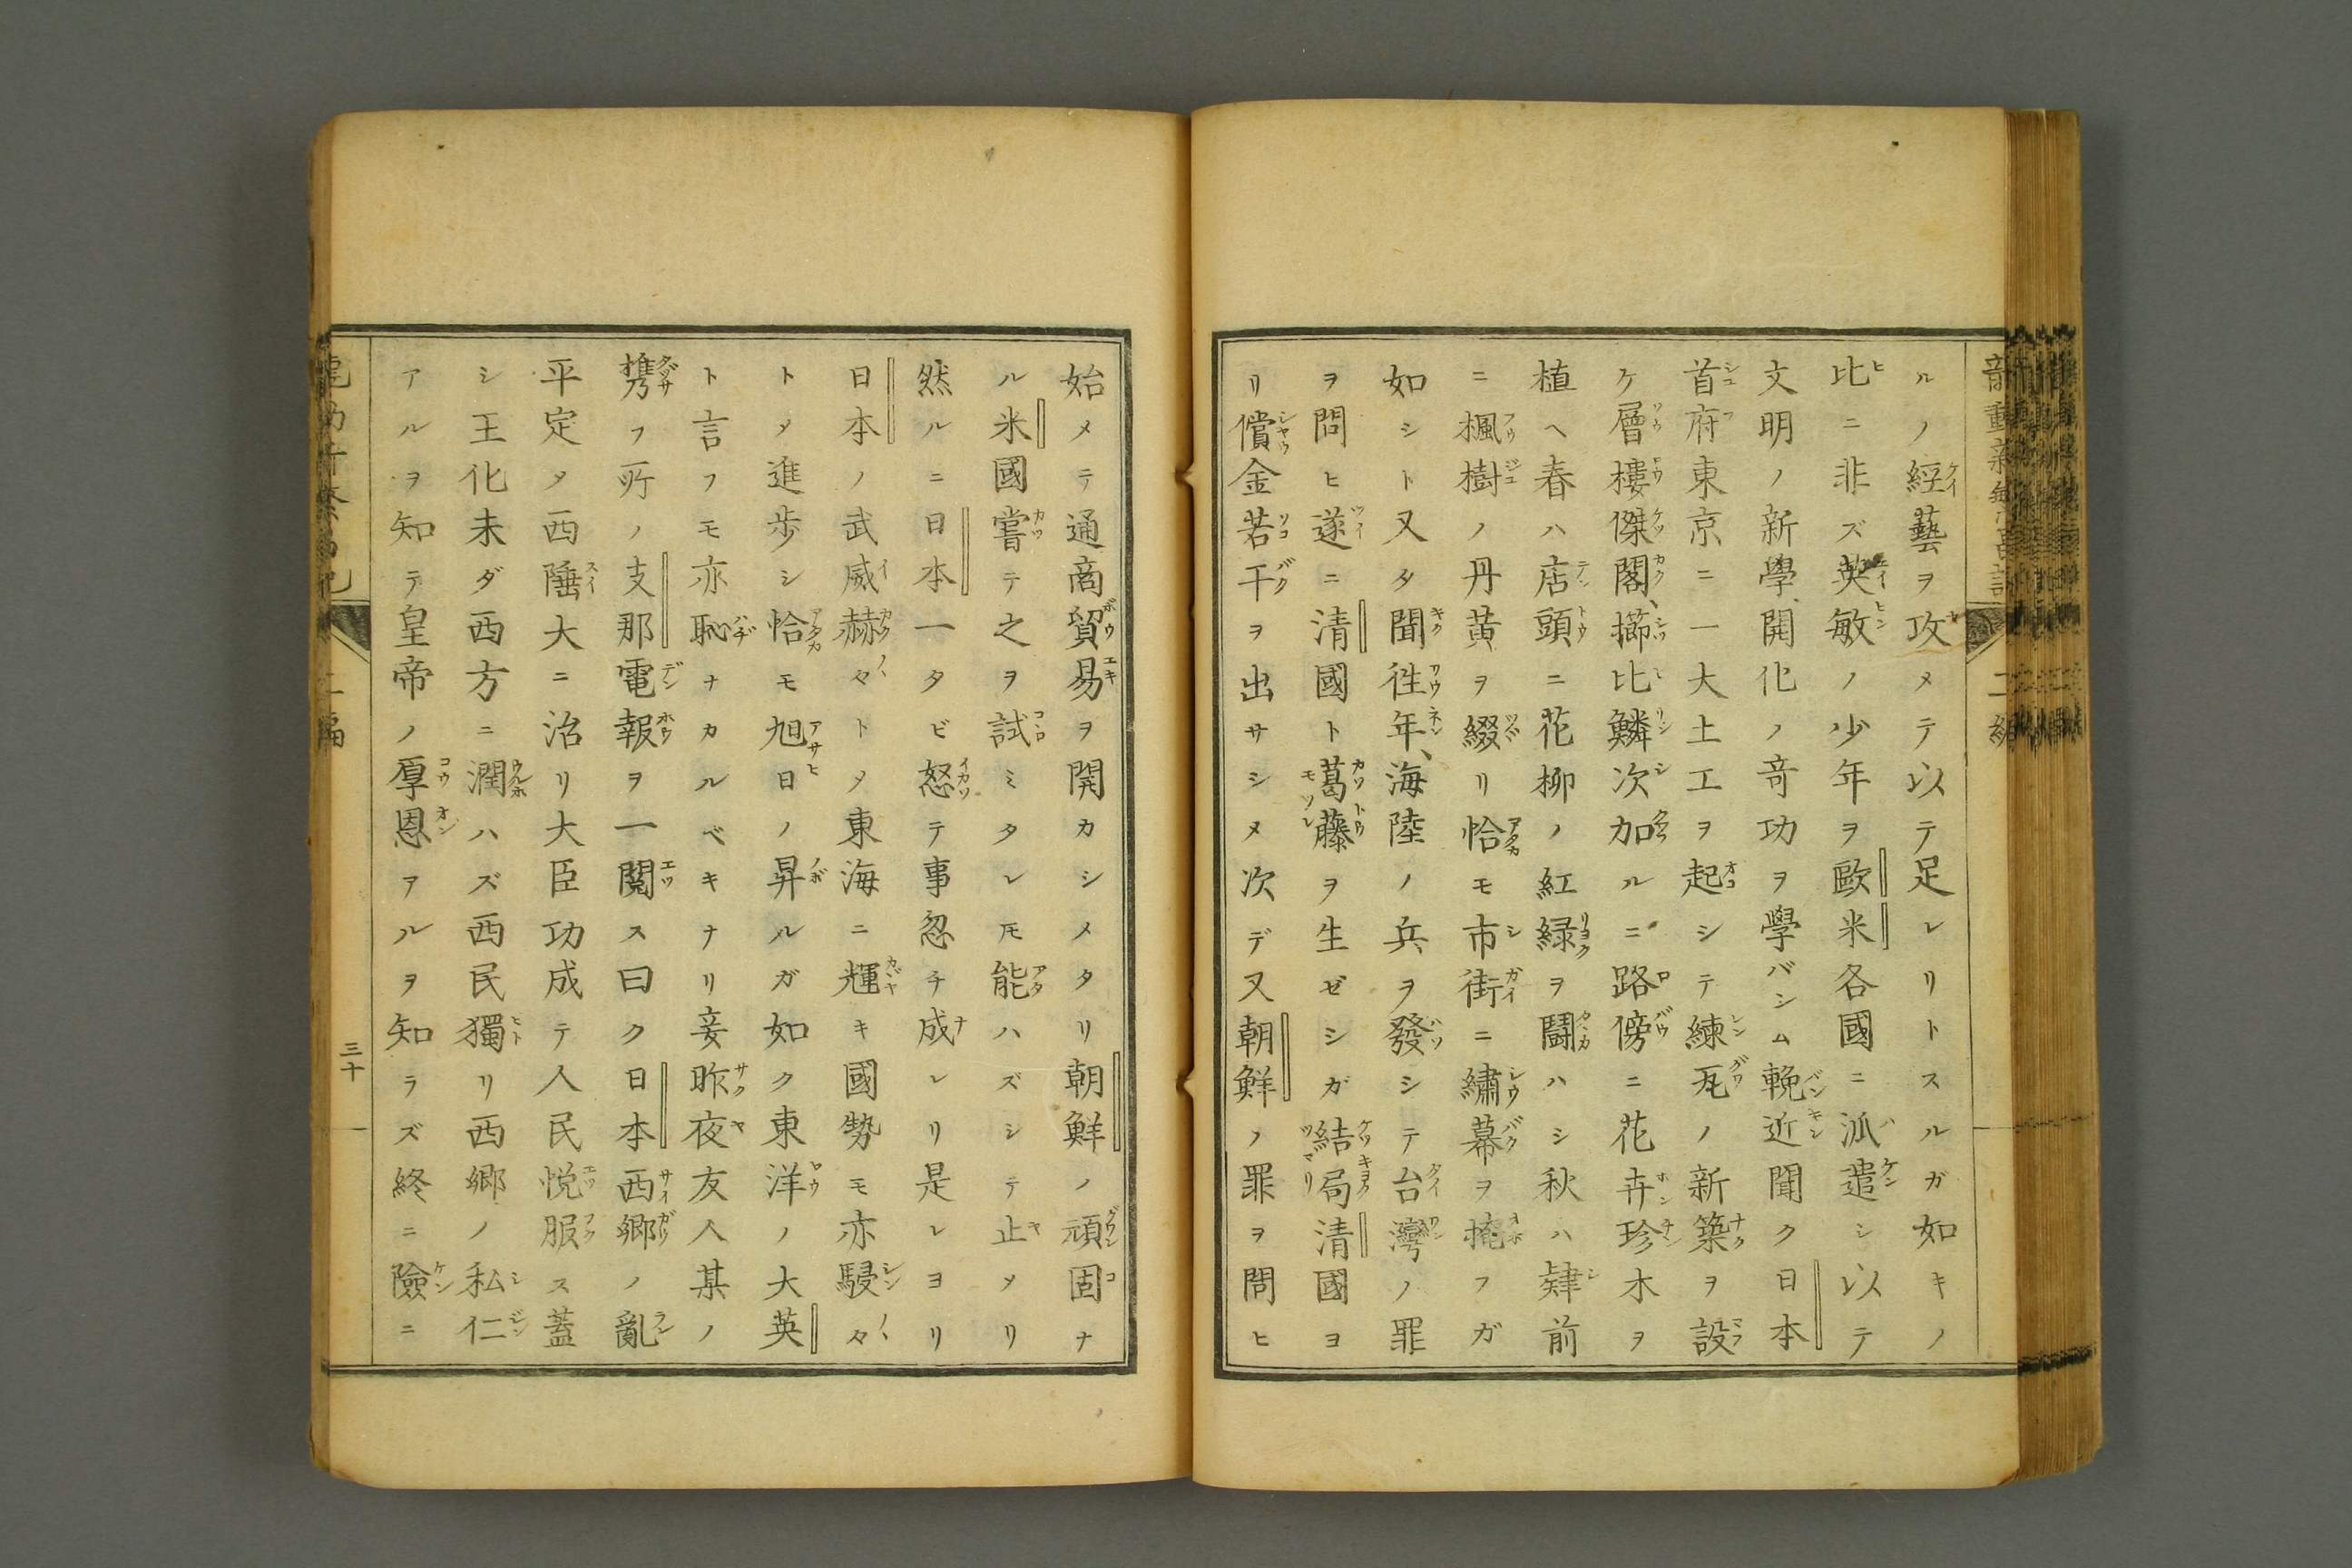 ルノ經藝ヲ攻メテ以テ足レリトスルガ如キノ
比ニ非ズ英敏ノ少年ヲ歐米各國ニ派遣シ以テ
文明ノ新學開化ノ竒功ヲ學バシム輓近聞ク日本
首府東京ニ一大土工ヲ起シテ練瓦ノ新築ヲ設
ケ層樓傑閣、櫛比鱗次加ルニ路傍ニ花卉珍木ヲ
植ヘ春ハ店頭ニ花柳ノ紅緑ヲ鬪ハシ秋ハ肆前
ニ楓樹ノ丹黄ヲ綴リ恰モ市街ニ繡幕ヲ掩フガ
如シト又タ聞徃年、海陸ノ兵ヲ發シテ台灣ノ罪
ヲ問ヒ遂ニ清國ト葛藤ヲ生ゼシガ結局清國ヨ
リ償金若干ヲ出サシメ次デ又朝鮮ノ罪ヲ問ヒ
二編
始メテ通商貿易ヲ開カシメタリ朝鮮ノ頑固ナ
ル米國嘗テ之ヲ試ミタレ𪜈能ハズシテ止メリ
然ルニ日本一タビ怒テ事忍チ成レリ是レヨリ
日本ノ武威赫々トメ東海ニ輝キ國勢モ亦駸々
トメ進歩シ恰モ旭日ノ昇ルガ如ク東洋ノ大英
ト言フモ亦恥ナカルベキナリ妾昨夜友人某ノ
携フ所ノ支那電報ヲ一閲ス曰ク日本西郷ノ亂
平定メ西陲大ニ治リ大臣功成テ人民悦服ス蓋
シ王化未ダ西方ニ潤ハズ西民獨リ西郷ノ私仁
アルヲ知テ皇帝ノ厚恩アルヲ知ラズ終ニ險ニ
二編
三十